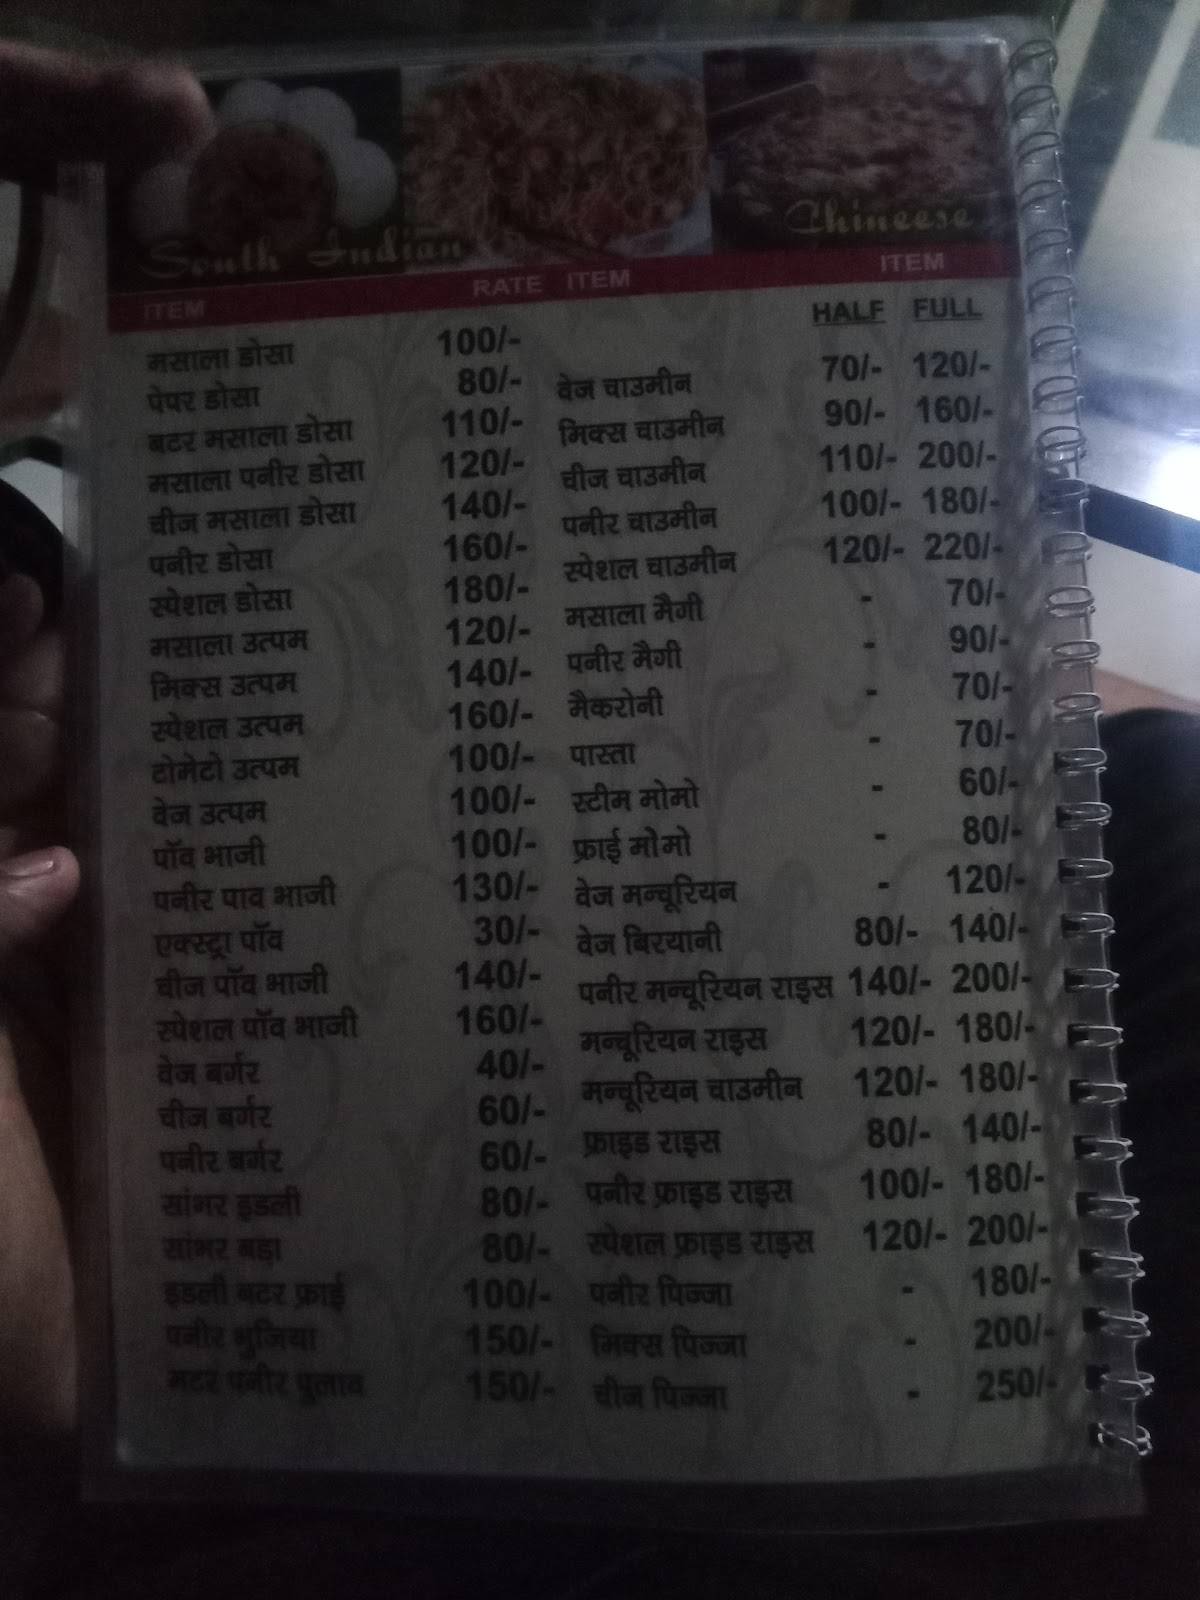 South Indian
Chineese
ITEM RATE ITEM ITEM
HALF FULL
मसाला डोसा 100/-
पेपर डोसा 80/-
बटर मसाला डोसा 110/-
मसाला पनीर डोसा 120/-
चीज मसाला डोसा 140/-
पनीर डोसा 160/-
स्पेशल डोसा 180/-
मसाला उत्पम 120/-
मिक्स उत्पम 140/-
स्पेशल उत्पम 160/-
टोमेटो उत्पम 100/-
वेज उत्पम 100/-
पॉव भाजी 100/-
पनीर पाव भाजी 130/-
एक्स्ट्रा पॉव 30/-
चीज पॉव भाजी 140/-
स्पेशल पॉव भाजी 160/-
वेज बर्गर 40/-
चीज बर्गर 60/-
पनीर बर्गर 60/-
सांभर इडली 80/-
सांभर बड़ा 80/-
इडली बटर फ्राई 100/-
पनीर भुजिया 150/-
मटर पनीर पुलाव 150/-
वेज चाउमीन 70/- 120/-
मिक्स चाउमीन 90/- 160/-
चीज चाउमीन 110/- 200/-
पनीर चाउमीन 100/- 180/-
स्पेशल चाउमीन 120/- 220/-
मसाला मैगी - 70/-
पनीर मैगी - 90/-
मैकरोनी - 70/-
पास्ता - 70/-
स्टीम मोमो - 60/-
फ्राई मोमो - 80/-
वेज मन्चूरियन - 120/-
वेज बिरयानी 80/- 140/-
पनीर मन्चूरियन राइस 140/- 200/-
मन्चूरियन राइस 120/- 180/-
मन्चूरियन चाउमीन 120/- 180/-
फ्राइड राइस 80/- 140/-
पनीर फ्राइड राइस 100/- 180/-
स्पेशल फ्राइड राइस 120/- 200/-
पनीर पिज्जा - 180/-
मिक्स पिज्जा - 200/-
चीज पिज्जा - 250/-